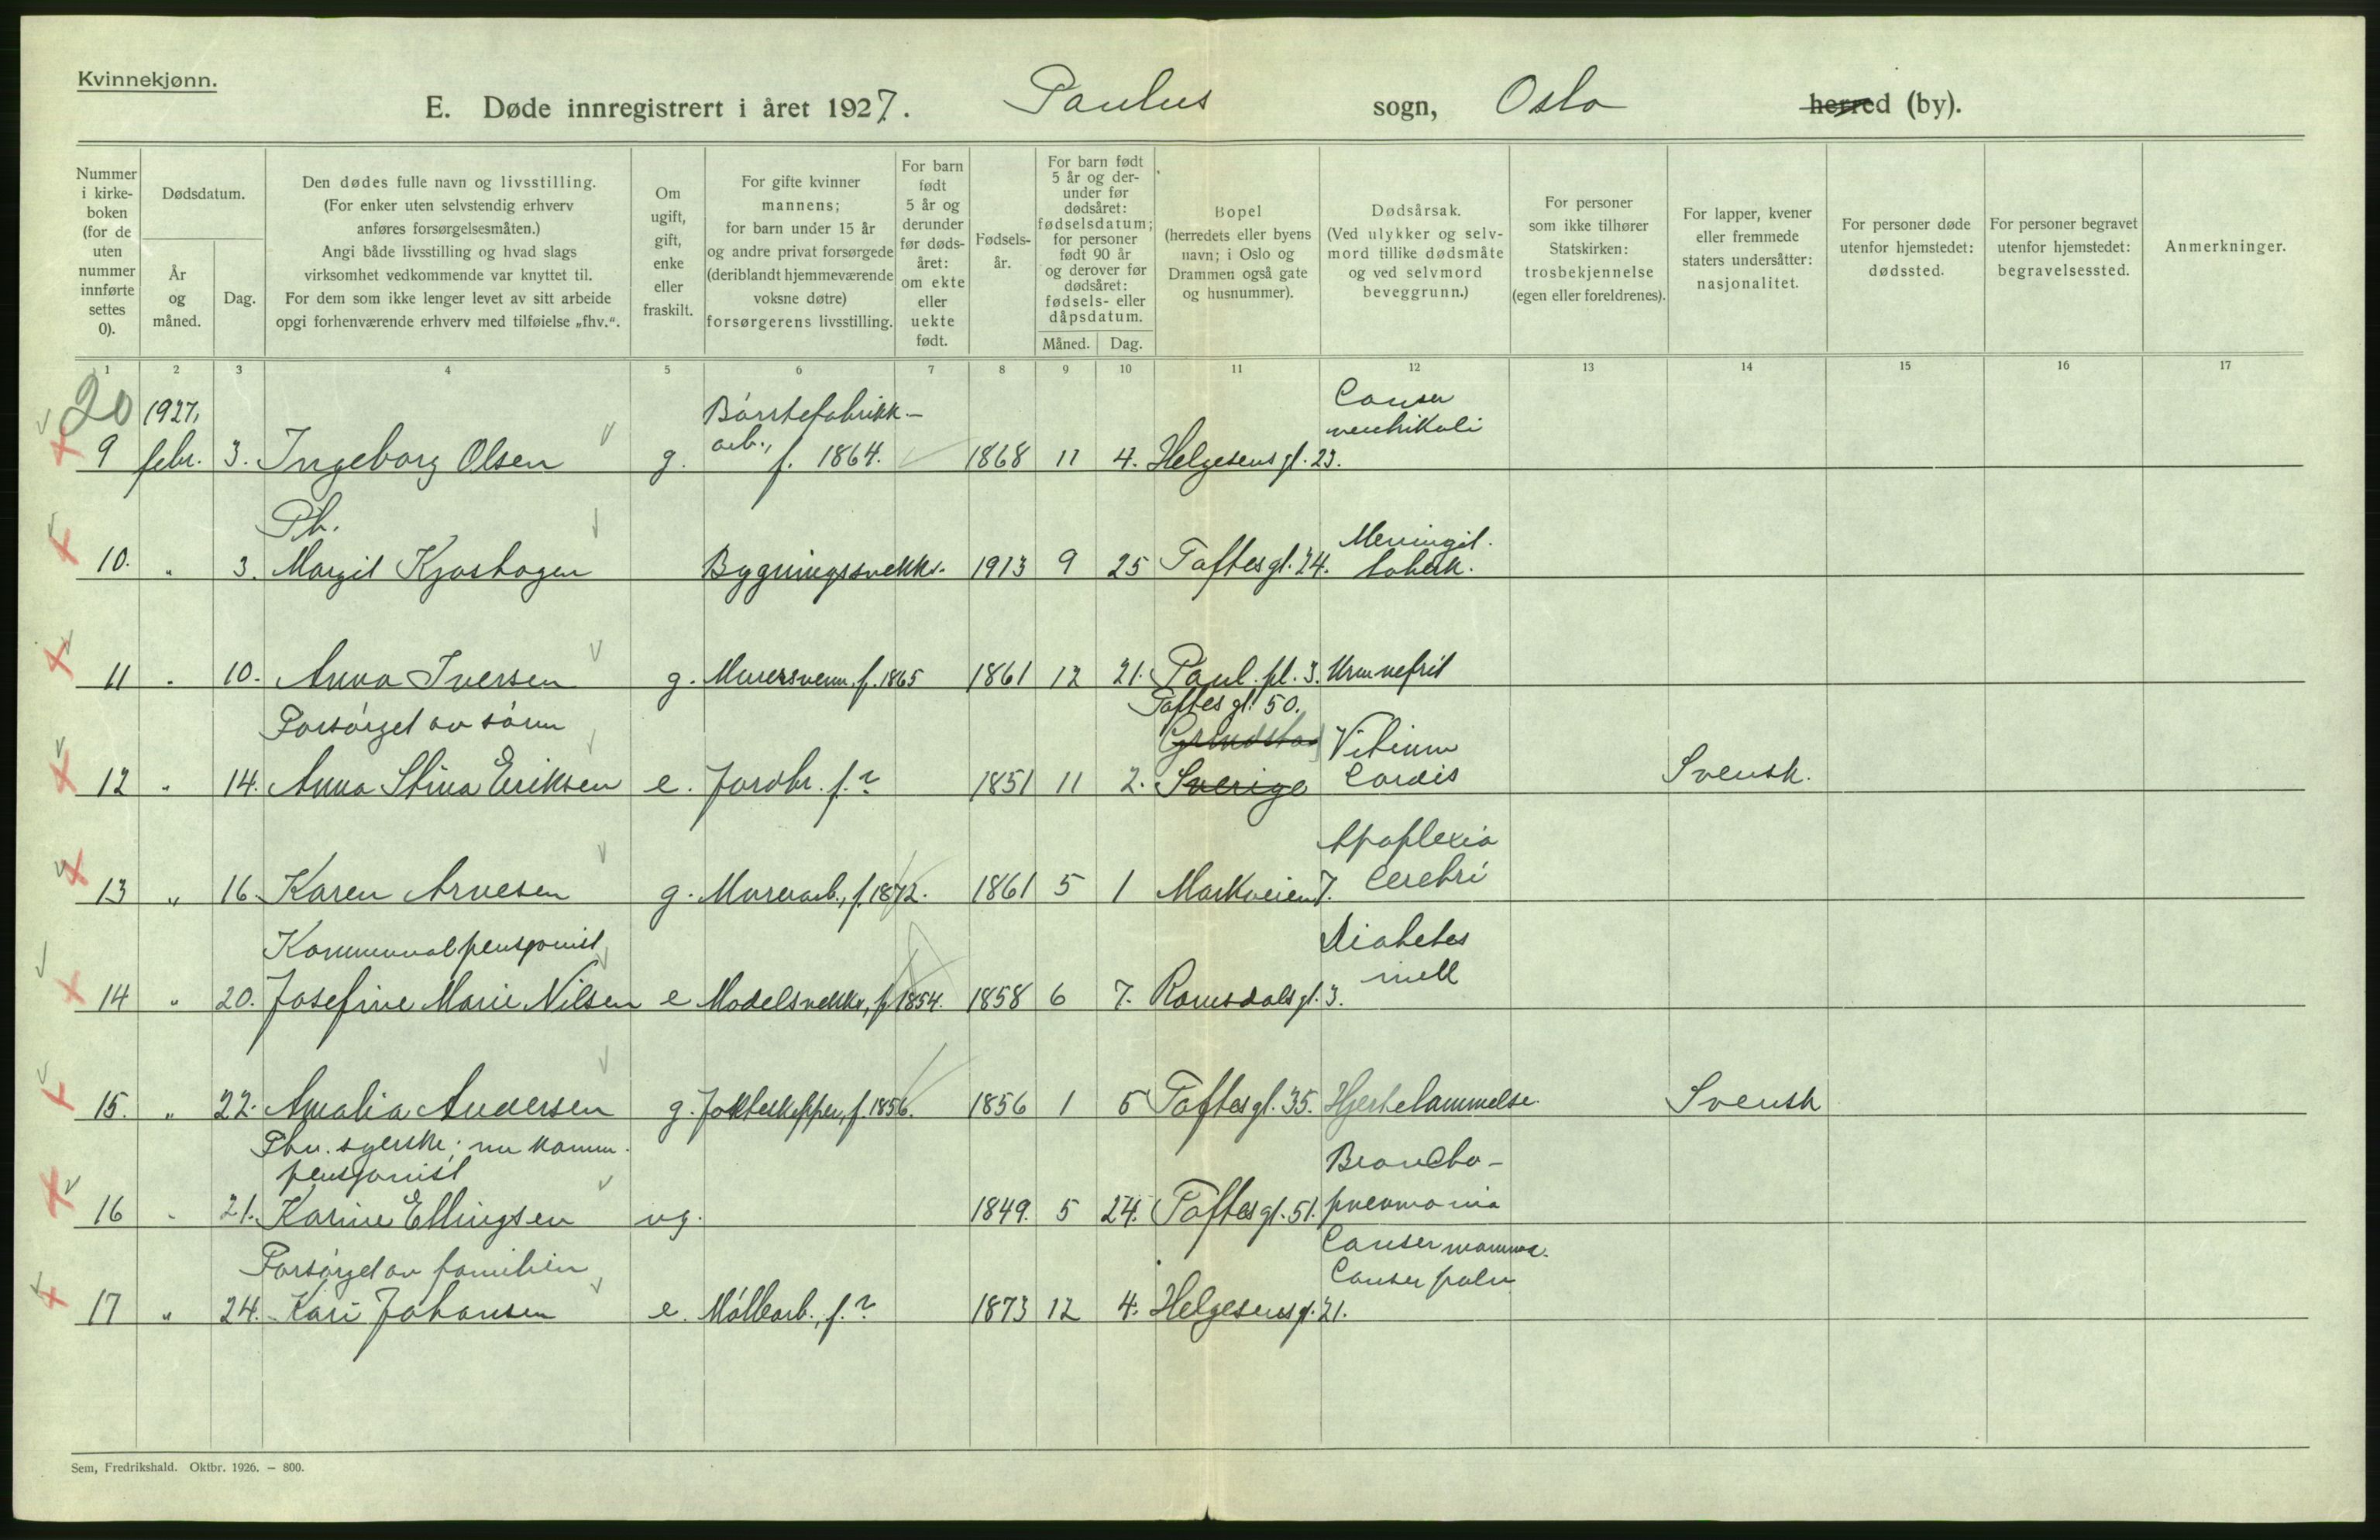 Kvinnekjønn.
E. Døde innregistrert i året 1927. Paulus sogn, Oslo herred (by).
Nummer i kirke- boken (for de uten nummer innførte settes 0).
Dødsdatum.
År og måned.
Dag.
Den dødes fulle navn og livsstilling.
(For enker uten selvstendig erhverv
anføres forsørgelsesmåten.)
Angi både livsstilling og hvad slags
virksomhet vedkommende var knyttet til.
For dem som ikke lenger levet av sitt arbeide
opgi forhenværende erhverv med tilføielse „fhv.“.
Om ugift, gift, enke eller fraskilt.
For gifte kvinner
mannens;
for barn under 15 år
og andre privat forsørgede
(deriblandt hjemmeværende
voksne døtre)
forsørgerens livsstilling.
For barn født 5 år og derunder før døds- året: om ekte eller uekte født.
Fødsels- år.
For barn født
5 år og der-
under før
dødsåret:
fødselsdatum;
for personer
født 90 år
og derover før
dødsåret:
fødsels- eller
dåpsdatum.
Måned. Dag.
Bopel
(herredets eller byens
navn; i Oslo og
Drammen også gate
og husnummer).
Dødsårsak.
(Ved ulykker og selv-
mord tillike dødsmåte
og ved selvmord
beveggrunn.)
For personer
som ikke tilhører
Statskirken:
trosbekjennelse
(egen eller foreldrenes).
For lapper, kvener
eller fremmede
staters undersåtter:
nasjonalitet.
For personer døde
utenfor hjemstedet:
dødssted.
For personer begravet
utenfor hjemstedet:
begravelsessted.
Anmerkninger.
1 2 3 4 5 6 7 8 9 10 11 12 13 14 15 16 17
20 1927, Børstefabrikk- Canser
arb., ventrikuli
9 febr. 3. Ingeborg Olsen g. f. 1864. 1868 11 4. Helgesens gt. 23.
Meningit.
10. " 3. Margit Bygningssnekkr. 1913 9 25 Toftes gt. 24. tuberk.
11 " 10. Anna Iversen g. Murersvenn. f. 1865 1861 12 21. Paul. pl. 3. Urmnefrit
Forsørget av sønn Toftes gt. 50.
Grindstad Vitium
12 " 14. Anna Stina Eriksen e. Jordbr. f. ? 1851 11 2. Sverige Cordis Svensk.
Apoplexia
13 " 16. Karen Arnesen g. Murerarb., f. 1872. 1861 5 1 Markveien 7. Cerebri
Kommunalpensjonist Diabetes
mell
14 " 20. Josefine Marie Nilsen e Modelsnekkr, f. 1854. 1858 6 7. Romsdals gt. 3.
15. " 22. Amalia Andersen g. Jakteskipper, f. 1856. 1856 1 5 Toftes gt. 35. Hjertelammelse Svensk
Fhv. syerske; nu komm. Broncho-
pensjonist
16 " 21. Karine Ellingsen ug. 1849. 5 24. Toftes gt. 51. pneumonia
Forsørget av familien Canser mamma.
Canser pulm
17 " 24. Kari Johansen e. Møllearb., f. ? 1873 12 4. Helgesens gt. 21.
Sem, Fredrikshald. Oktbr. 1926. — 800.